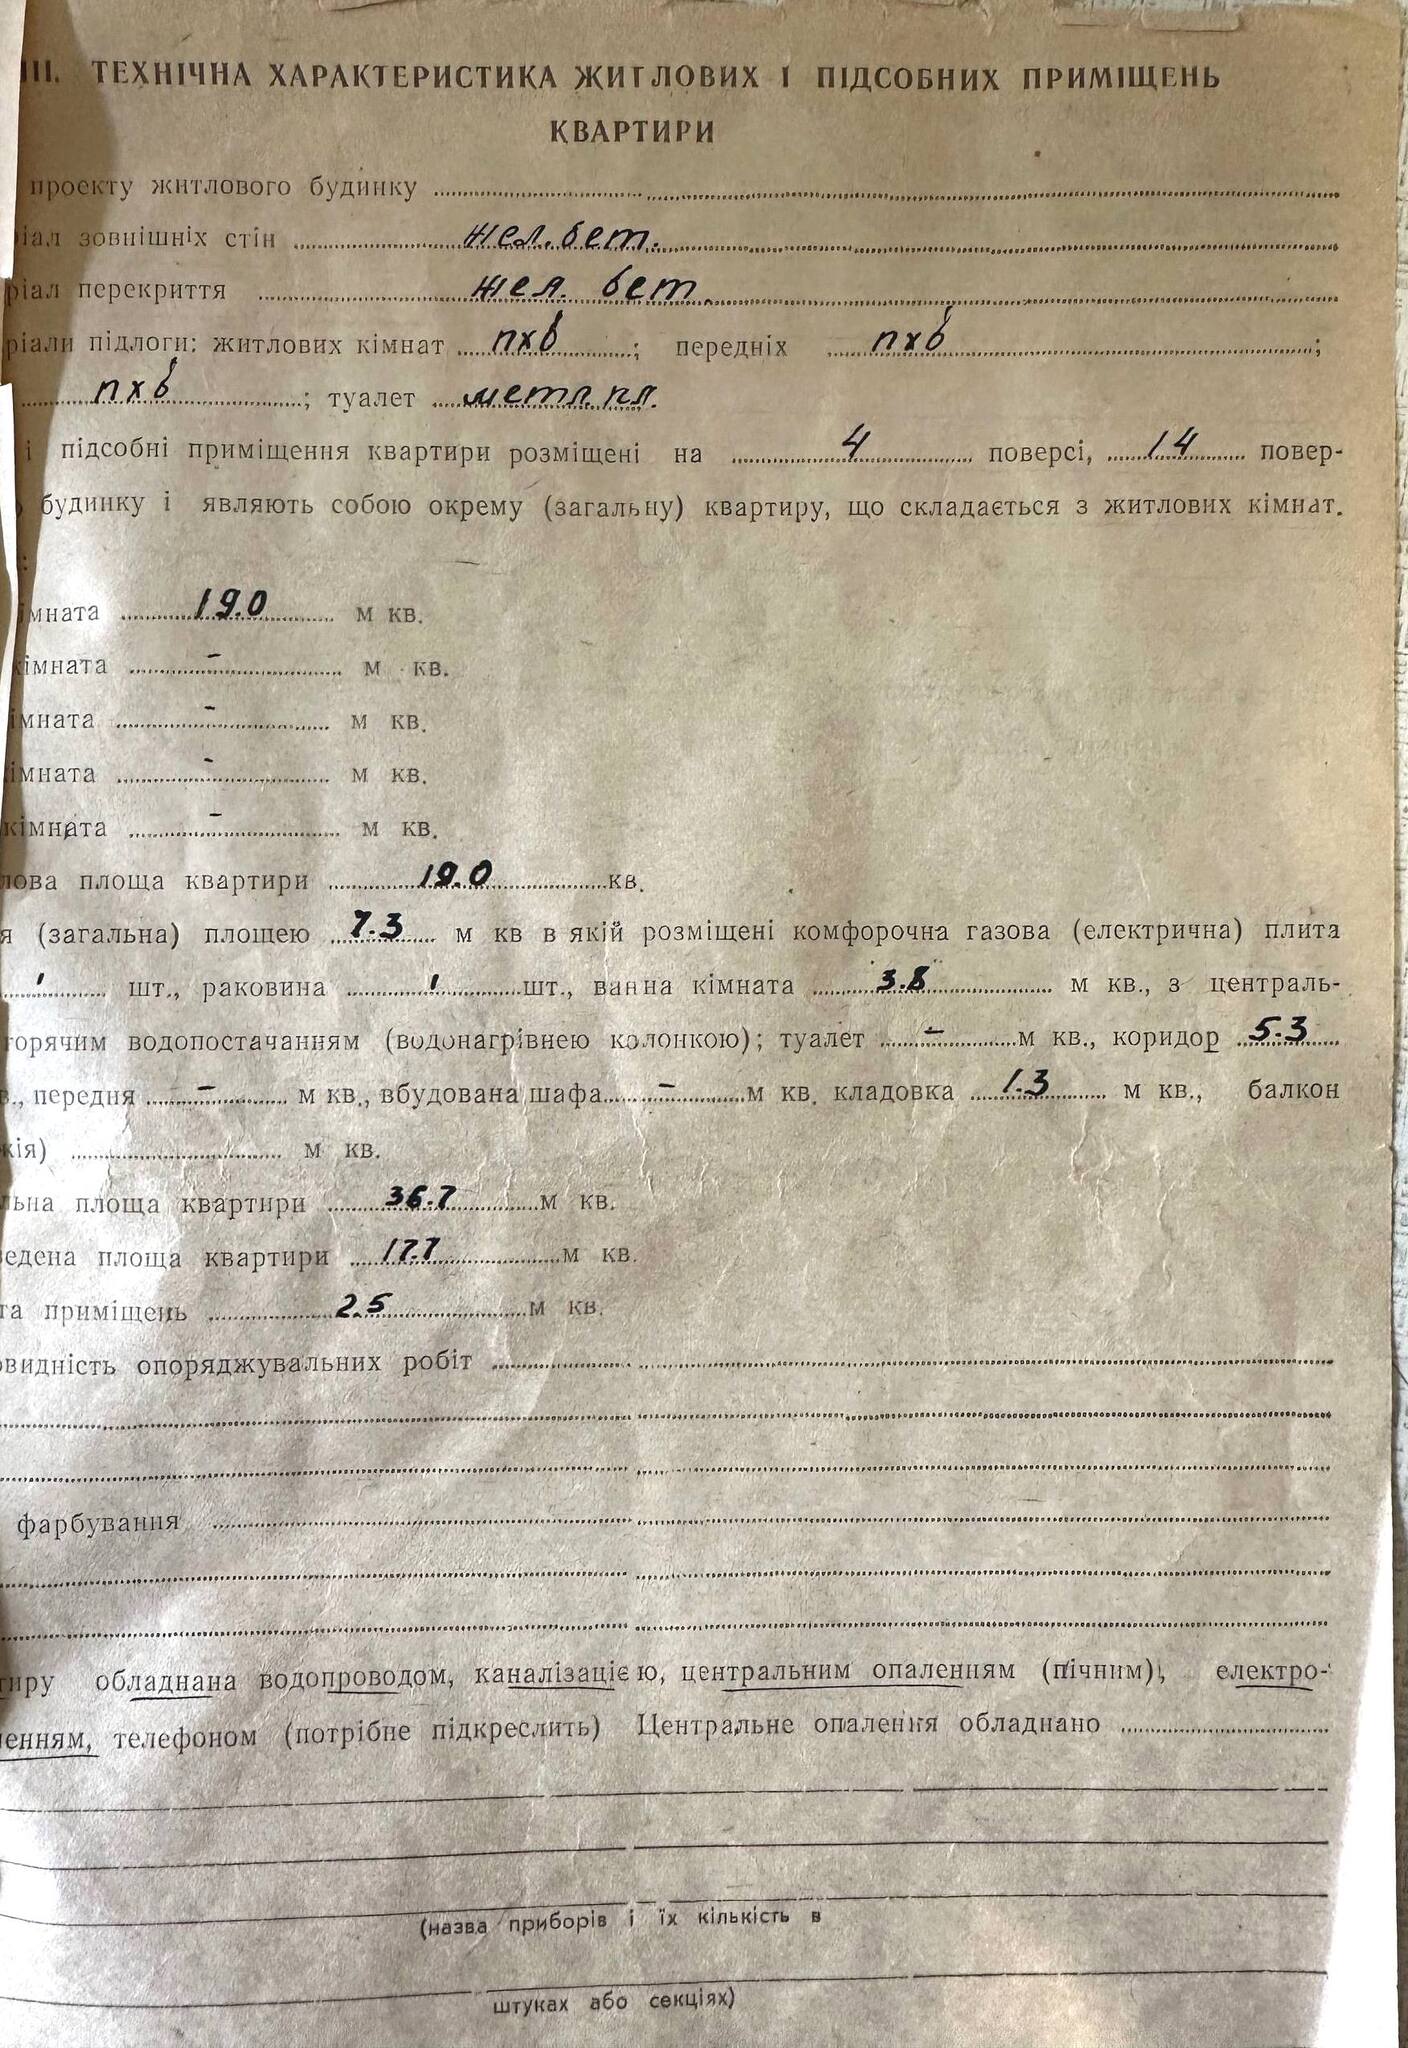 III. ТЕХНІЧНА ХАРАКТЕРИСТИКА ЖИТЛОВИХ І ПІДСОБНИХ ПРИМІЩЕНЬ
КВАРТИРИ
проекту житлового будинку
ріал зовнішніх стін жел. бет.
ріал перекриття жел. бет
ріали підлоги: житлових кімнат пхв ; передніх пхв ;
пхв ; туалет метл. пл.
і підсобні приміщення квартири розміщені на 4 поверсі, 14 повер-
будинку і являють собою окрему (загальну) квартиру, що складається з житлових кімнат.
:
імната 19.0 м кв.
кімната – м кв.
імната – м кв.
імната – м кв.
кімната – м кв.
лова площа квартири 19.0 кв.
я (загальна) площею 7.3 м кв в якій розміщені комфорочна газова (електрична) плита
1 шт., раковина 1 шт., ванна кімната 3.8 м кв., з централь-
горячим водопостачанням (водонагрівнею колонкою); туалет – м кв., коридор 5.3
в., передня – м кв., вбудована шафа – м кв. кладовка 1.3 м кв., балкон
жія) м кв.
льна площа квартири 36.7 м кв.
ведена площа квартири 17.7 м кв.
та приміщень 2.5 м кв.
овидність опоряджувальних робіт
фарбування
тиру обладнана водопроводом, каналізацією, центральним опаленням (пічним), електро-
ленням, телефоном (потрібне підкреслить) Центральне опалення обладнано
(назва приборів і їх кількість в
штуках або секціях)